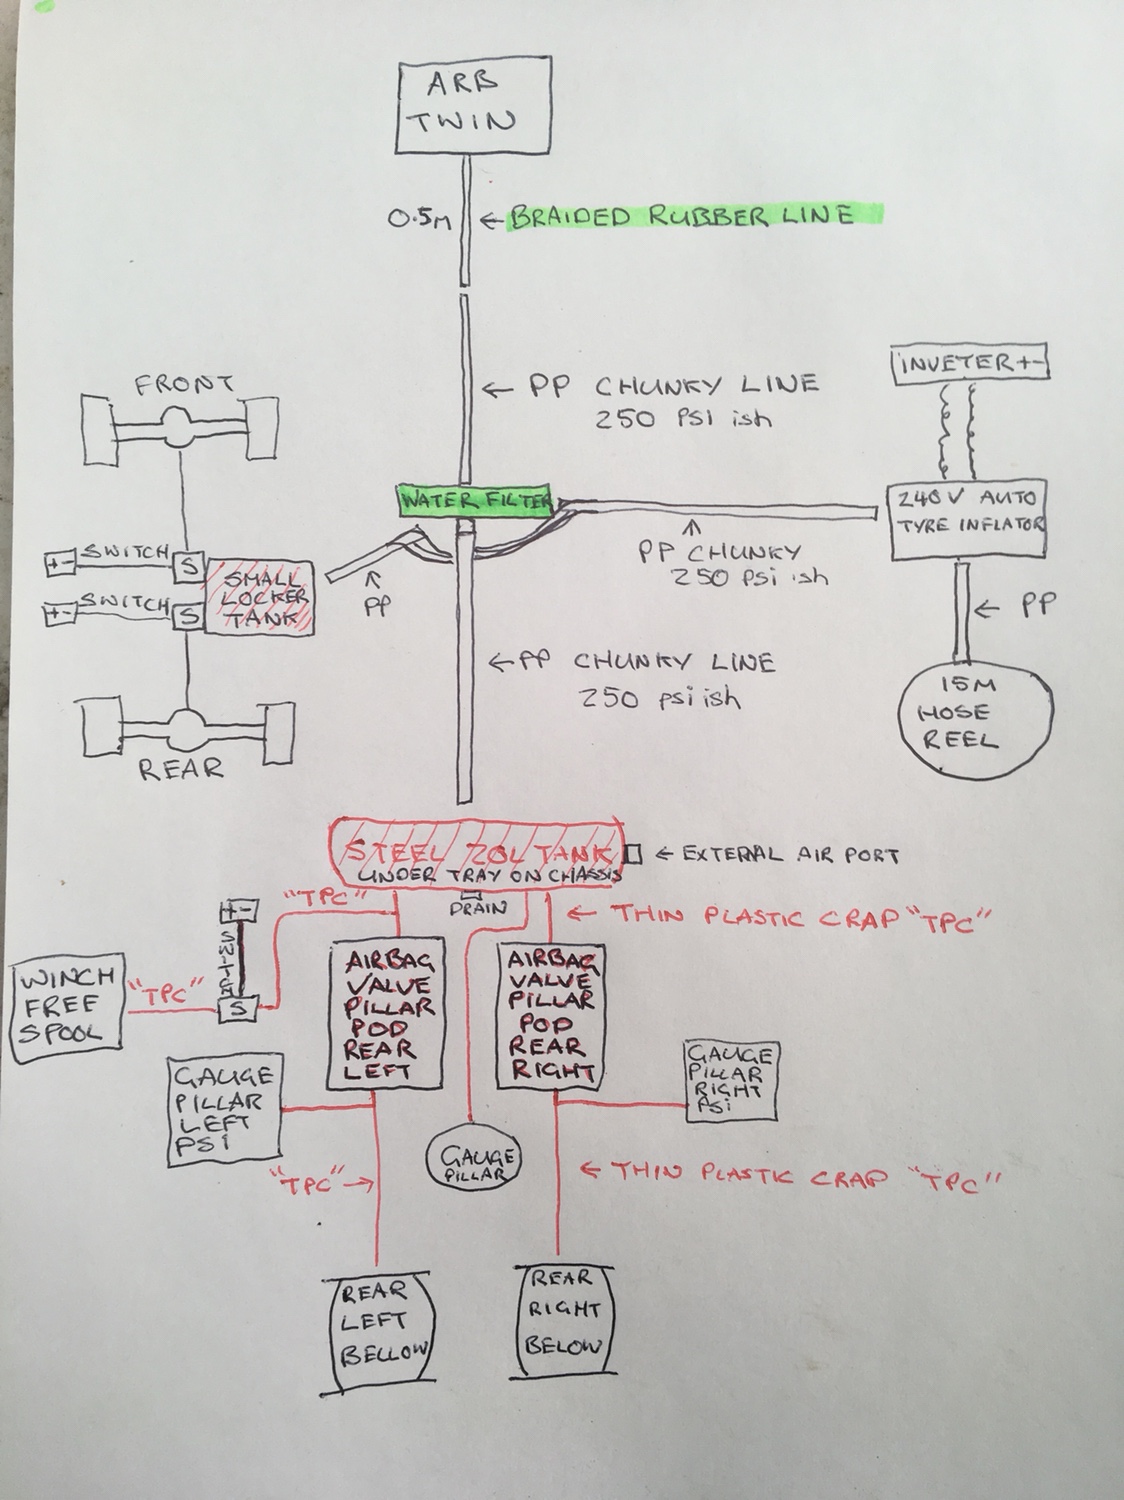 ARB
TWIN
0.5M
← BRAIDED RUBBER LINE
← PP CHUNKY LINE
250 PSI ish
INVETER +-
FRONT
WATER FILTER
240V AUTO
TYRE INFLATOR
PP CHUNKY
250 psi ish
+- SWITCH S
+- SWITCH S
SMALL
LOCKER
TANK
PP
← PP
← PP CHUNKY LINE
250 psi ish
15M
HOSE
REEL
REAR
STEEL 20L TANK
UNDER TRAY ON CHASSIS
← EXTERNAL AIR PORT
"TPC"
DRAIN
← THIN PLASTIC CRAP "TPC"
+-
SWITCH
S
WINCH
FREE
SPOOL
"TPC"
AIRBAG
VALVE
PILLAR
POD
REAR
LEFT
AIRBAG
VALVE
PILLAR
POD
REAR
RIGHT
GAUGE
PILLAR
LEFT
PSI
GAUGE
PILLAR
GAUGE
PILLAR
RIGHT
PSi
"TPC" →
← THIN PLASTIC CRAP "TPC"
REAR
LEFT
BELLOW
REAR
RIGHT
BELOW